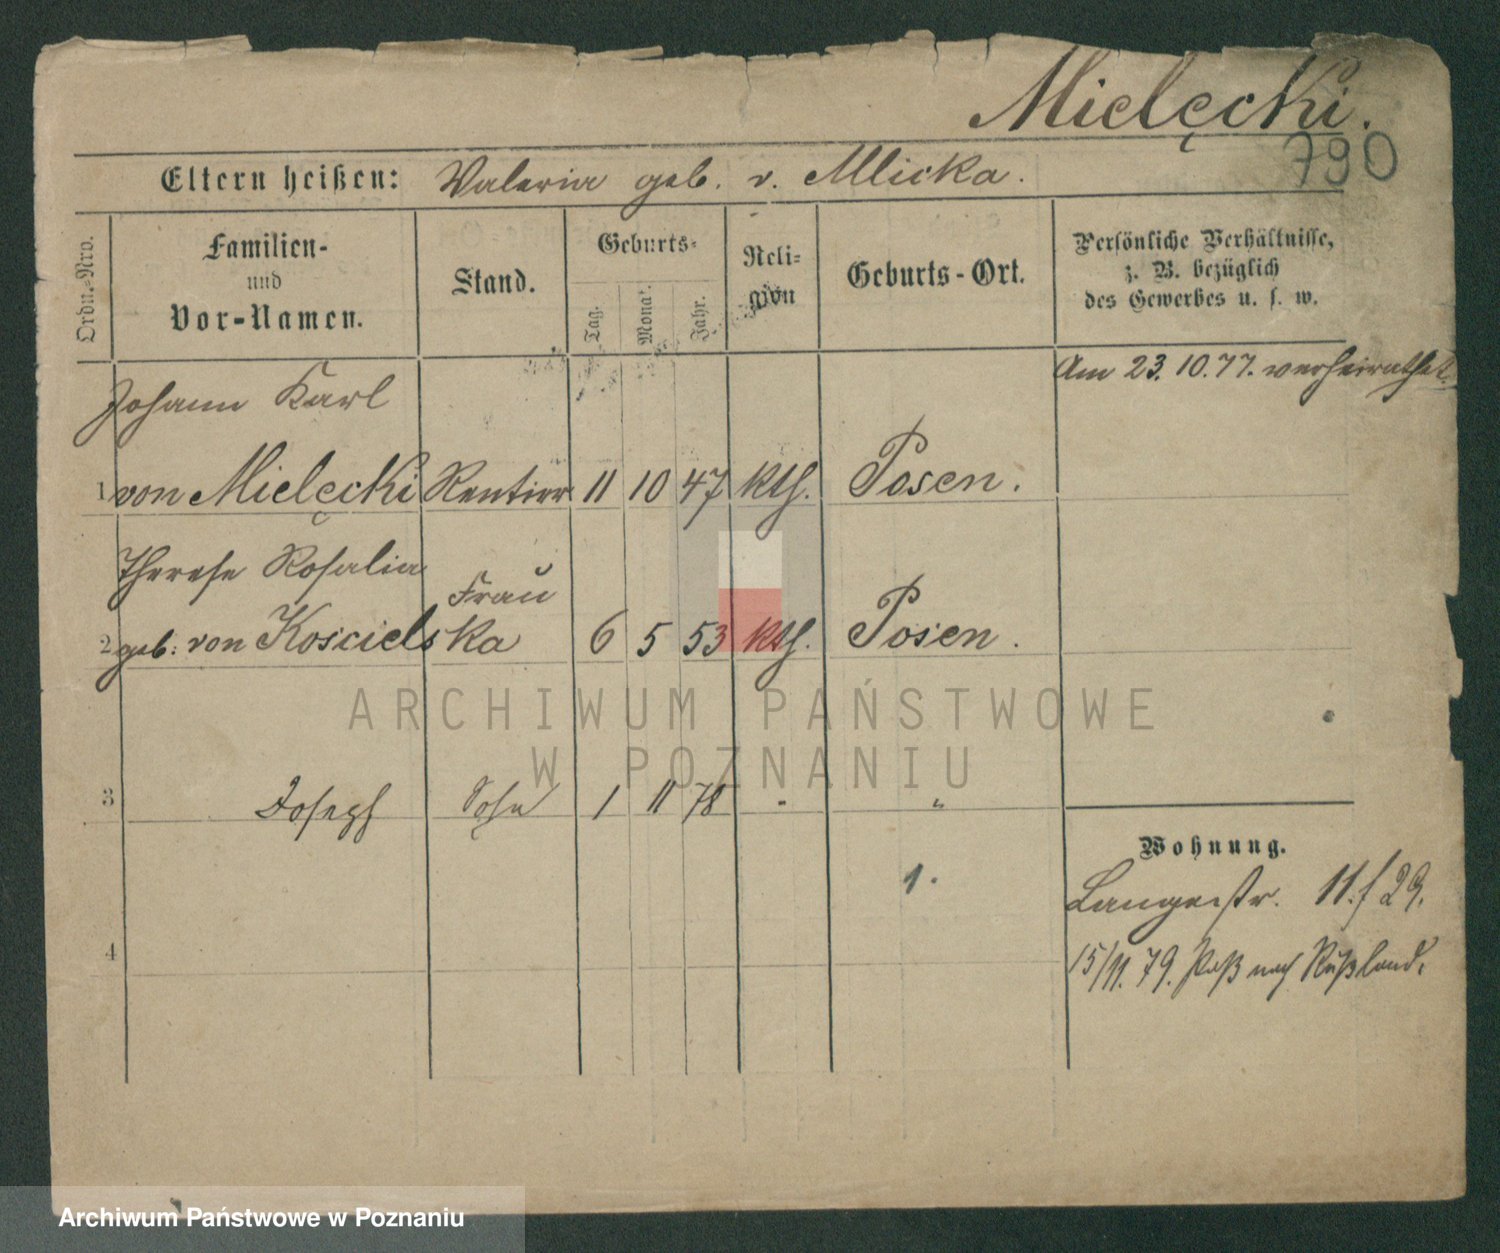 Mielęcki.
790
Eltern heißen: Valeria geb. v. Mlicka.
Ordn.-Nro.
Familien-
und
Vor-Namen.
Stand.
Geburts-
Tag.
Monat.
Jahr.
Reli-
gion
Geburts-Ort.
Persönliche Verhältnisse,
z. B. bezüglich
des Gewerbes u. s. w.
Am 23. 10. 77. verheirathet.
Johann Karl
1 von Mielęcki Rentier 11 10 47 kth. Posen.
Therese Rosalia
Frau
2 geb. von Koscielska 6 5 53 kth. Posen.
ARCHIWUM PAŃSTWOWE
W POZNANIU
3 Joseph Sohn 1 11 78 - "
Wohnung.
1.
Langestr. 11. f 29.
4
15/11. 79. Paß nach Rußland.
Archiwum Państwowe w Poznaniu